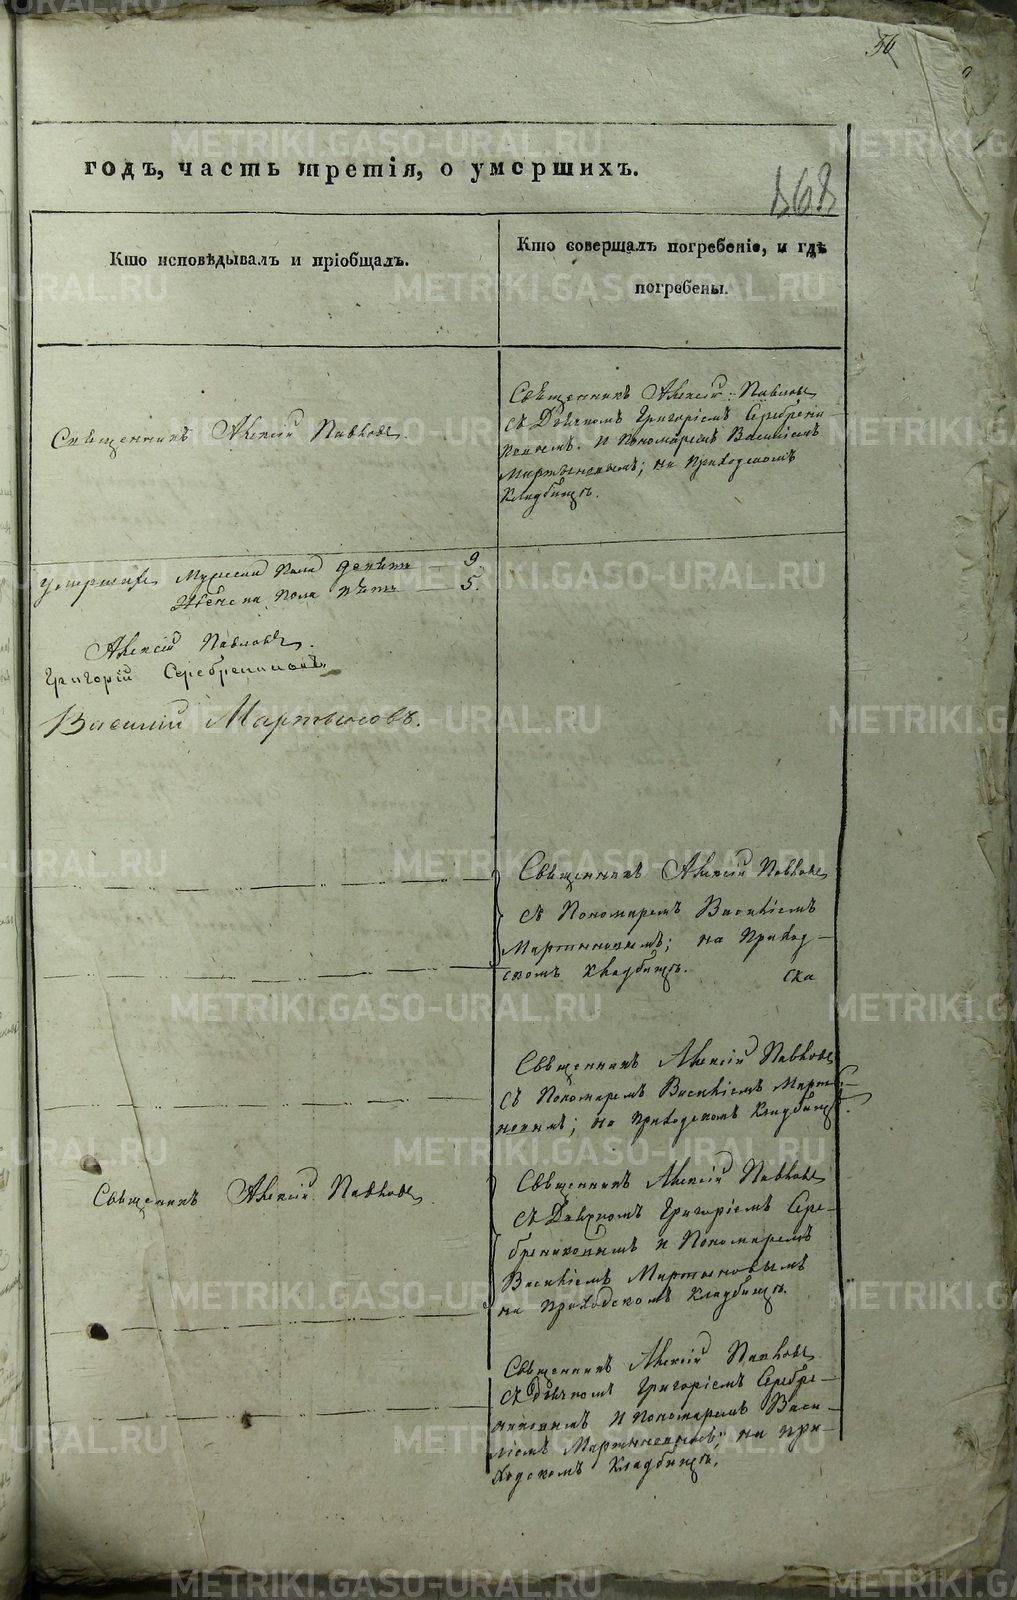 56
годъ, часть третія, о умершихъ.
168
Кто исповѣдывалъ и пріобщалъ.
Кто совершалъ погребеніе, и гдѣ
погребены.
Священникъ Алексій Павловъ.
Священникъ Алексій Павловъ
съ Дьячкомъ Григоріемъ Серебрени-
ковымъ. и Пономаремъ Василіемъ
Мартыновымъ; на Приходскомъ
Кладбищѣ.
умершихъ Мужеска Пола девять — 9.
Женска Пола пять — 5.
Алексій Павловъ.
Григорій Серебренниковъ.
Василій Мартыновъ.
Священникъ Алексій Павловъ
съ Пономаремъ Василіемъ
Мартыновымъ; на Приход-
скомъ кладбищѣ.
ска
Священникъ Алексій Павловъ
съ Пономаремъ Василіемъ Марты-
новымъ; на Приходскомъ Кладбищѣ.
Священникъ Алексій Павловъ.
Священникъ Алексій Павловъ
съ Дьячкомъ Григоріемъ Сере-
брениковымъ и Пономаремъ
Василіемъ Мартыновымъ
на Приходскомъ Кладбищѣ.
Священникъ Алексій Павловъ
съ дьячкомъ Григоріемъ Серебре-
никовымъ и Пономаремъ Васи-
ліемъ Мартыновымъ; на при-
ходскомъ Кладбищѣ.
METRIKI.GASO-URAL.RU